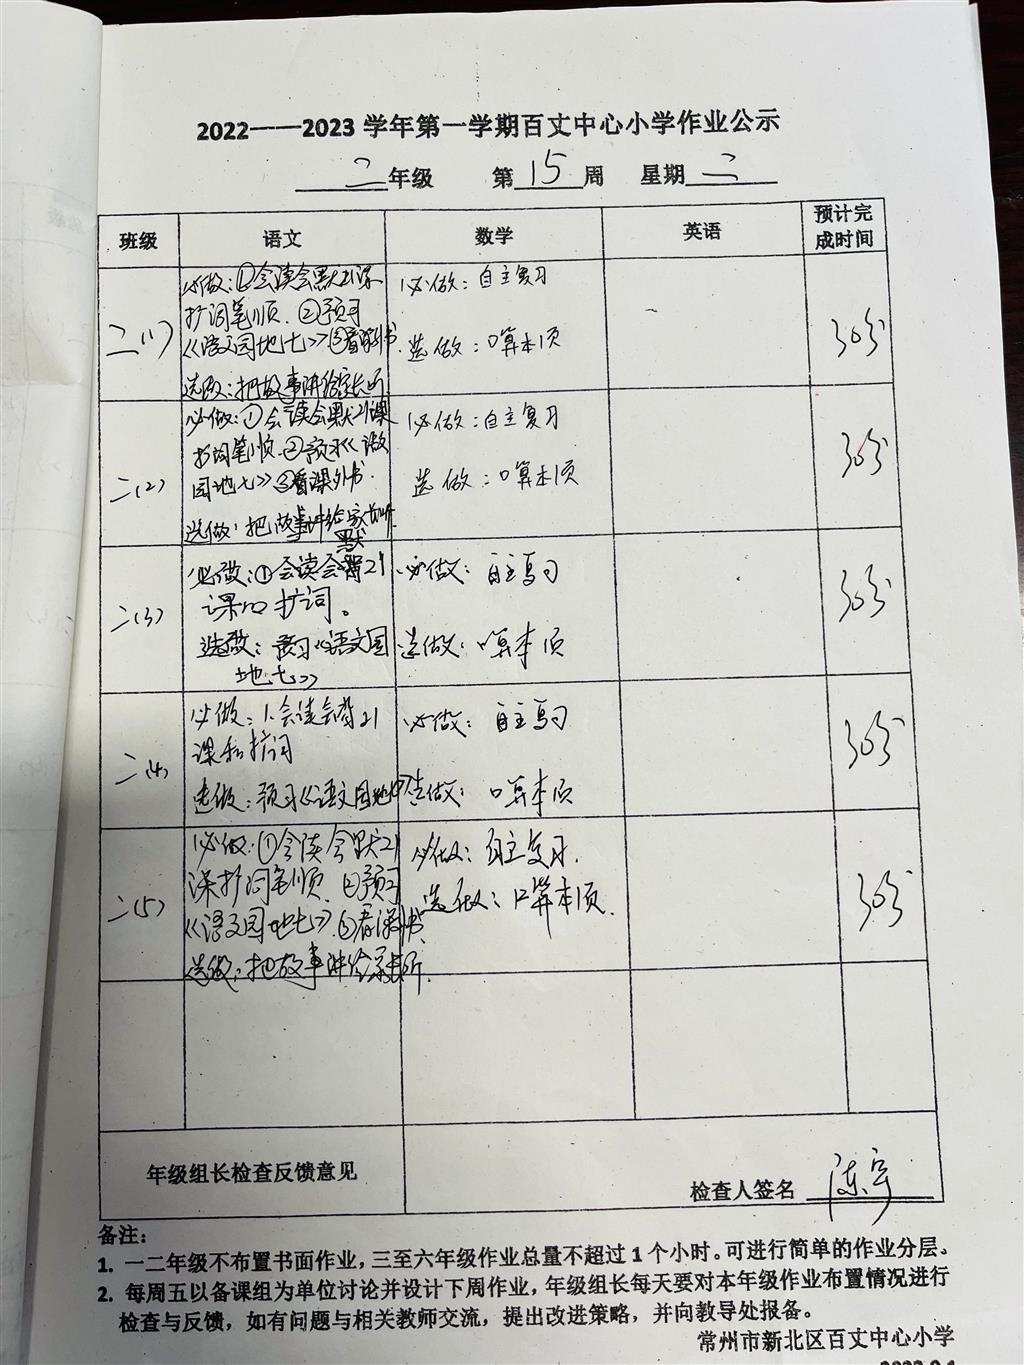 2022——2023学年第一学期百丈中心小学作业公示
二年级 第15周 星期二
班级 语文 数学 英语 预计完成时间
二(1)
必做：①会读会默21课
扩词笔顺.②预习
《语文园地七》③看课外书.
选做：把故事讲给家长听
必做：自主复习
选做：口算本1页
30分
二(2)
必做：①会读会默21课
扩词笔顺.②预习《语文
园地七》③看课外书.
选做：把故事讲给家长听.
必做：自主复习
选做：口算本1页
30分
二(3)
必做：①会读会默21
课的扩词。
选做：预习《语文园
地七》
必做：自主复习
选做：口算本1页
30分
二(4)
必做：1.会读会背21
课和扩词
选做：预习《语文园地七》
必做：自主复习
选做：口算本1页
30分
二(5)
必做：①会读会默21
课扩词笔顺.②预习
《语文园地七》.③看课外书.
选做：把故事讲给家长听.
必做：自主复习.
选做：口算本1页.
30分
年级组长检查反馈意见
检查人签名 陈宇
备注：
1. 一二年级不布置书面作业，三至六年级作业总量不超过1个小时。可进行简单的作业分层。
2. 每周五以备课组为单位讨论并设计下周作业，年级组长每天要对本年级作业布置情况进行
检查与反馈，如有问题与相关教师交流，提出改进策略，并向教导处报备。
常州市新北区百丈中心小学